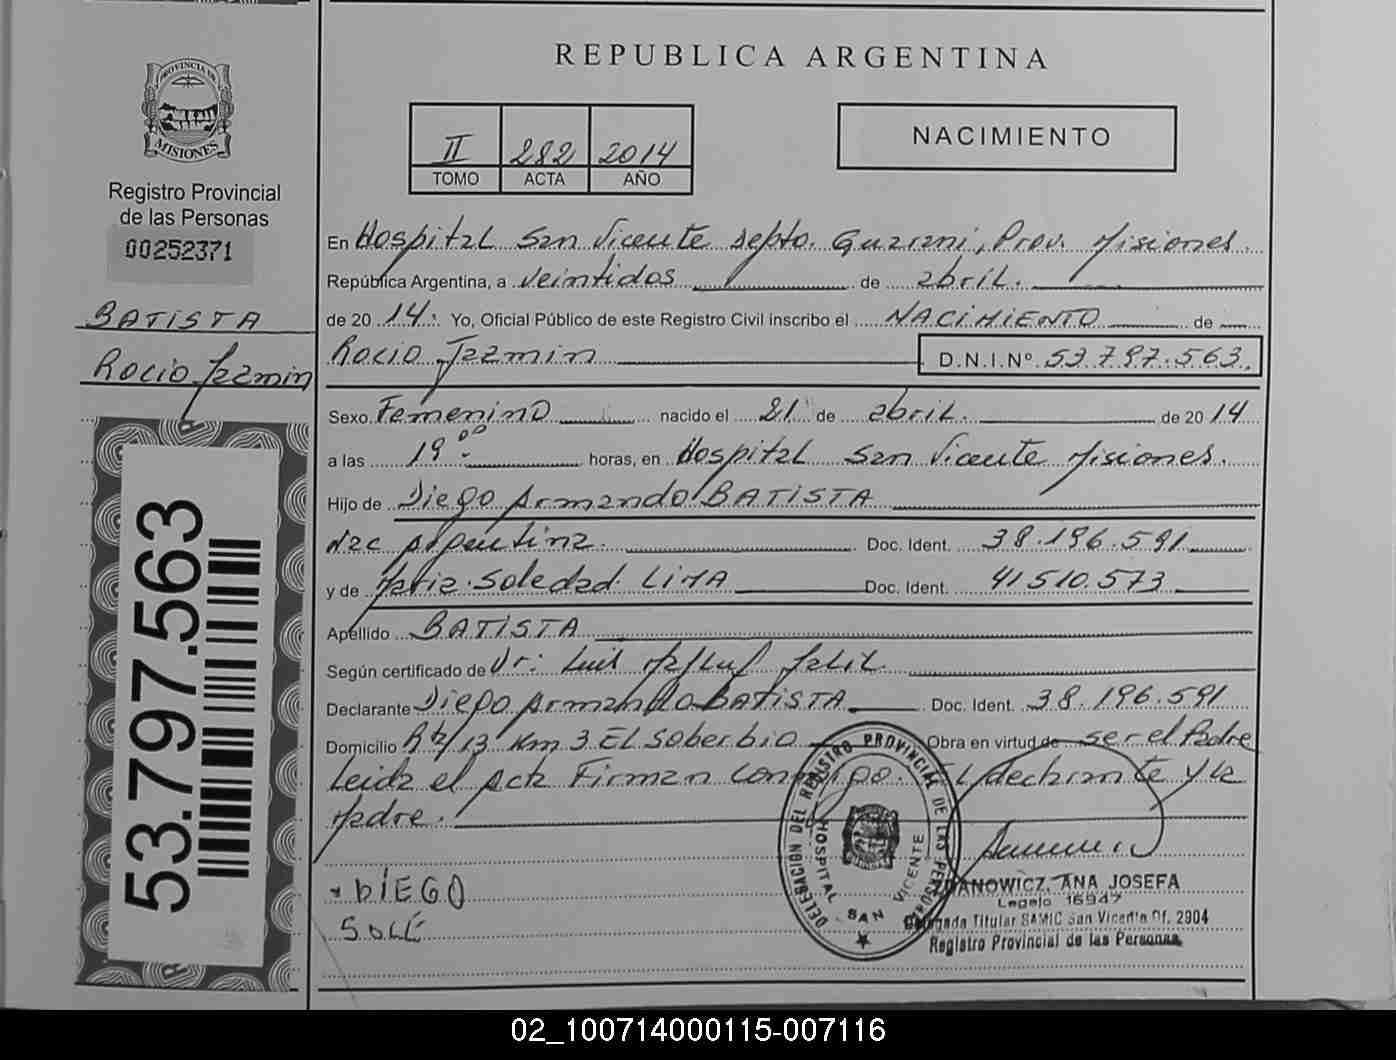 REPUBLICA ARGENTINA
PROVINCIA DE
MISIONES
Registro Provincial
de las Personas
00252371
BATISTA
Rocio Jazmin
53.797.563
II 282 2014
TOMO ACTA AÑO
NACIMIENTO
En Hospital San Vicente depto. Guarani, Prov. Misiones.
República Argentina, a veintidos de abril.
de 2014. Yo, Oficial Público de este Registro Civil inscribo el NACIMIENTO de
Rocio Jazmin D.N.I.Nº 53.797.563.
Sexo Femenino nacido el 21 de abril. de 2014
a las 19.00 horas, en Hospital San Vicente Misiones.
Hijo de Diego Armando BATISTA
Nac Argentina. Doc. Ident. 38.196.591
y de Maria Soledad LIMA Doc. Ident. 41510.573
Apellido BATISTA
Según certificado de Dr: Luis
Declarante Diego Armando BATISTA Doc. Ident. 38.196.591
Domicilio Km 3 El Soberbio Obra en virtud de ser el Padre
Leida el Acta Firman conmigo. El declarante y la
Madre.
DIEGO
SOLE
DELEGACION DEL REGISTRO PROVINCIAL DE LAS PERSONAS
HOSPITAL SAN VICENTE
ANA JOSEFA
Legajo 16947
Delegada Titular SAMIC San Vicente Of. 2904
Registro Provincial de las Personas
02_100714000115-007116